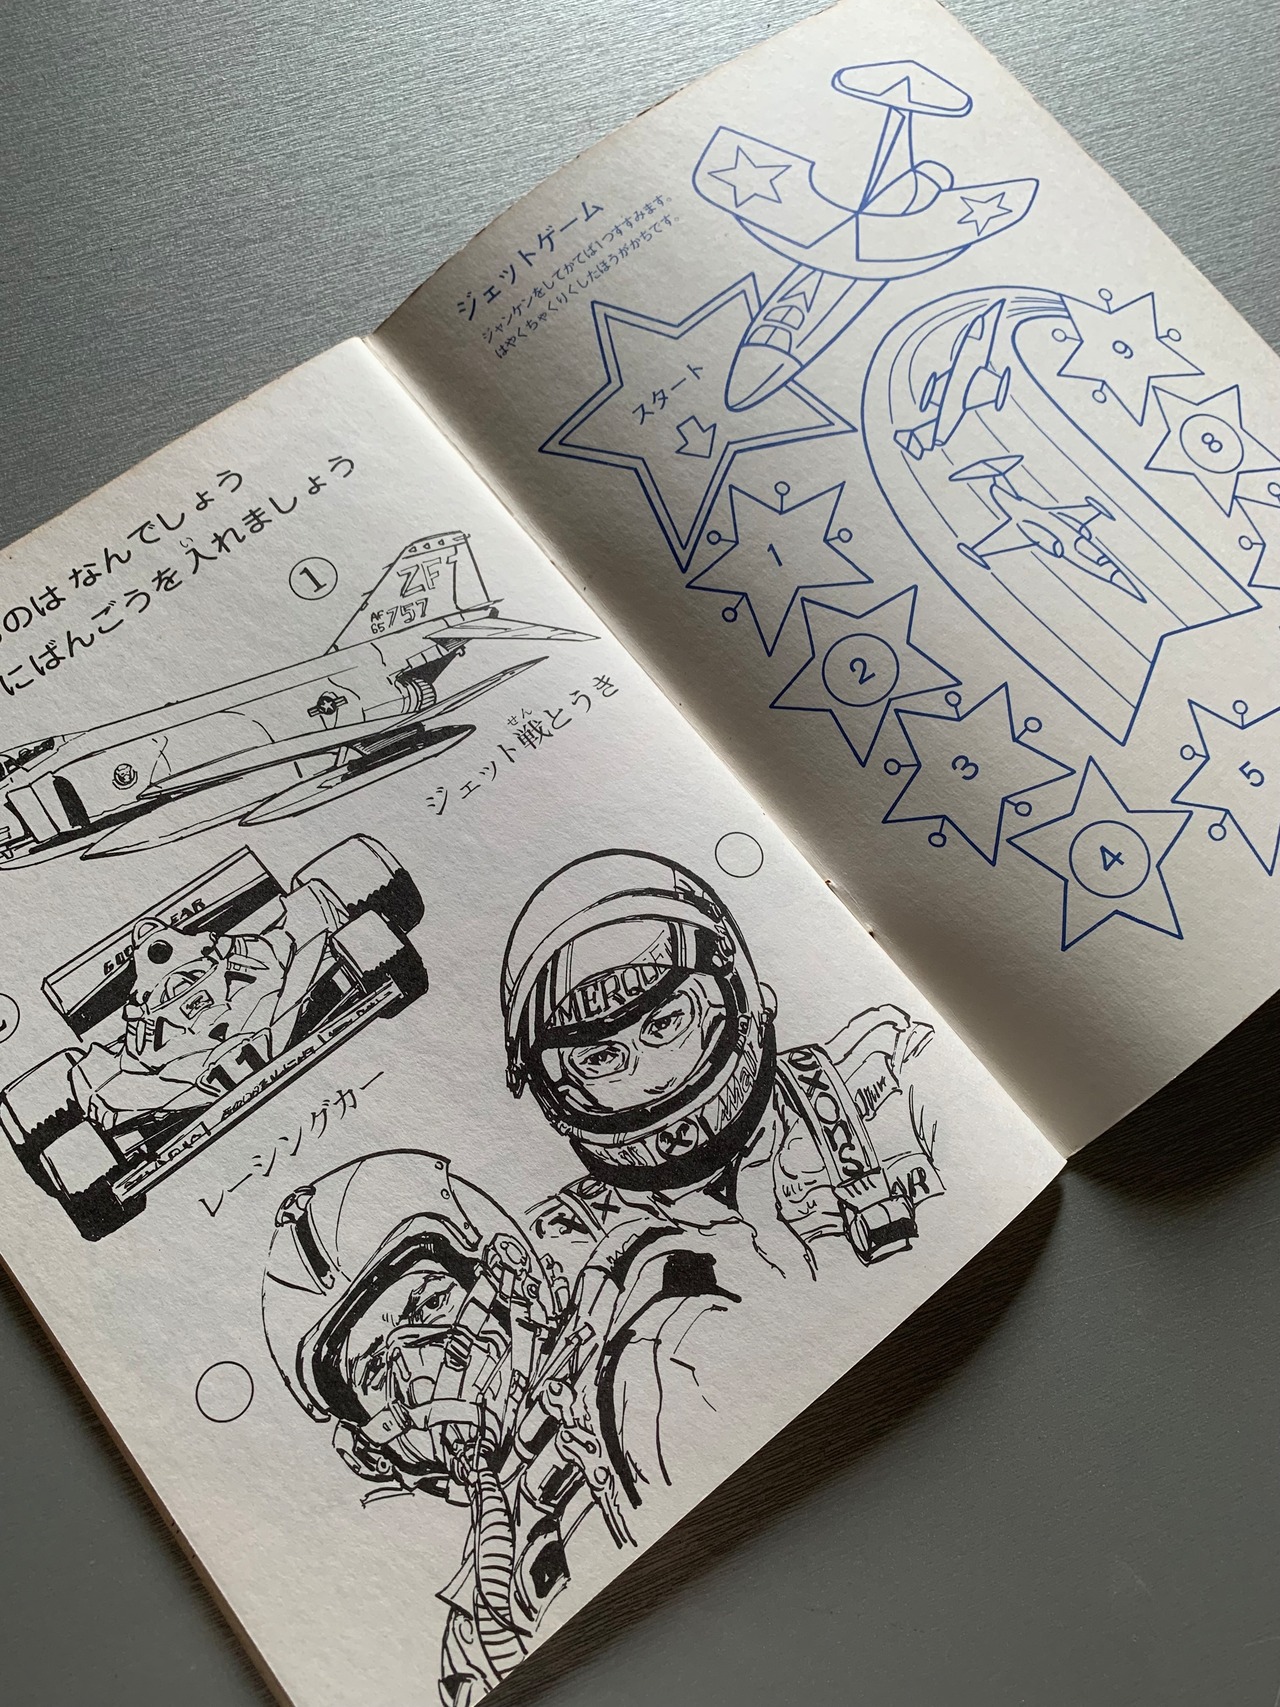 のは なんでしょう
にばんごうを入れましょう
い
1
ZF
AF
65
757
ジェット戦とうき
せん
GOO
EAR
11
レーシングカー
MERCU
ジェットゲーム
ジャンケンをしてかてば1つすすみます。
はやくちゃくりくしたほうがかちです。
スタート
1
2
3
4
5
8
9